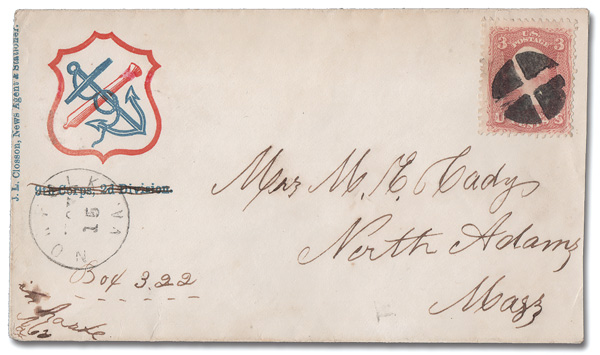 J. L. Closson, News Agent & Stationer.
U.S. POSTAGE
3 3
9th Corps, 2d Division.
NORFOLK VA
15
Mrs M. E. Cadys
North Adams
Mass
Box 322
in haste